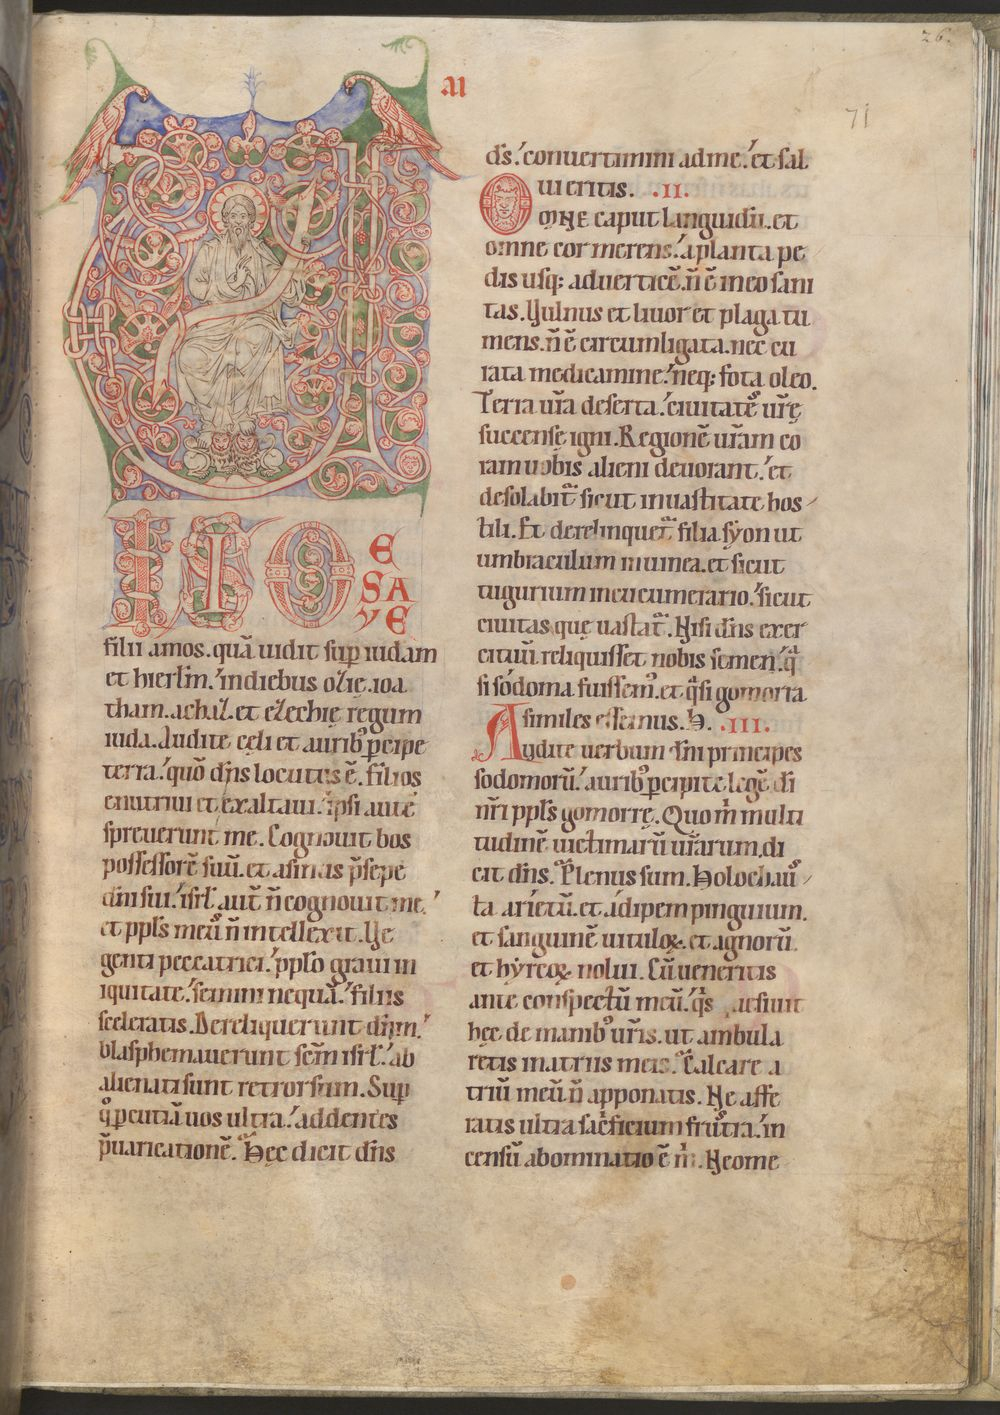 26.
71
VI
SIO
E
SA
YE
filii amos. quā uidit sup iudam
et hierłm. in diebus ozię. ioa
tham. achaz. et ezechię regum
iuda. Audite cęli et aurib; pcipe
terra. quō dñs locutus ē. filios
enutriui et exaltaui. ipsi autē
spreuerunt me. Cognouit bos
possessorē suū. et asinus p̄sepe
dñi sui. isrł aut̄ n̄ cognouit me.
et ppłs meus n̄ intellexit. Ve
genti peccatrici. pplo graui in
iquitate. semini nequā. filiis
sceleratis. Dereliquerunt dn̄m.
blasphemauerunt scm̄ isrł. ab
alienati sunt retrorsum. Sup
q̊ pcutiā uos ultra. addentes
p̄uaricationē. Hęc dicit dñs
ds. conuertimini ad me. et sal
ui eritis. .II.
OMNE caput languidū. et
omne cor merens. a planta pe
dis usq; ad uerticē. n̄ ē in eo sani
tas. Vulnus et liuor et plaga tu
mens. n̄ ē circumligata. nec cu
rata medicamine. neq; fota oleo.
Terra ur̄a deserta. ciuitates ur̄ę
succensę igni. Regionē ur̄am co
ram uobis alieni deuorant. et
desolabit̄ sicut in uastitate hos
tili. Et derelinquet̄ filia syon ut
umbraculum in uinea. et sicut
tugurium in cucumerario. sicut
ciuitas que uastat̄. Nisi dñs exer
cituū reliquisset nobis semen. q̄
si sodoma fuissem;. et q̄si gomorra
similes essemus. .III.
Audite uerbum dn̄i principes
sodomorū. aurib; pcipite legē di
nr̄i ppłs gomorrę. Quo m̄ multi
tudinē uictimarū ur̄arum. di
cit dñs. Plenus sum. Holochaus
ta arietū. et adipem pinguium.
et sanguinē uituloꝝ. et agnorū
et hyrcoꝝ nolui. Cū ueneritis
ante conspectū meū. q̄s quesiuit
hęc de manib; ur̄is. ut ambula
retis in atriis meis. Calcare a
triū meū n̄ apponatis. Ne affe
ratis ultra sacrificium frustra. in
censū abominatio ē m̄. Neome